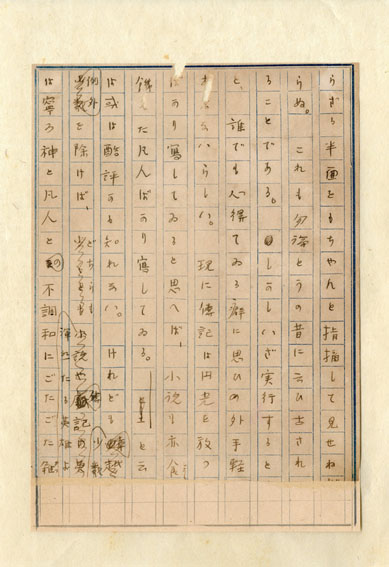 らざる半面をもちやんと指摘して見せね
らぬ。これも勿論とうの昔に云ひ古され
ることである。しかしいざ実行すると
と、誰でも心得てゐる癖に思ひの外手軽
れないらしい。現に伝記は円光を放つ
ばかり写してゐると思へば、小説も亦食
餓ゑた凡人ばかり写してゐる。――と云
は或は酷評かも知れない。けれども
例外 少数を除けば、どちらも 小説や伝記の
少数
渾然たる英雄よ
は寧ろ神と凡人との不調和にごたごた雑